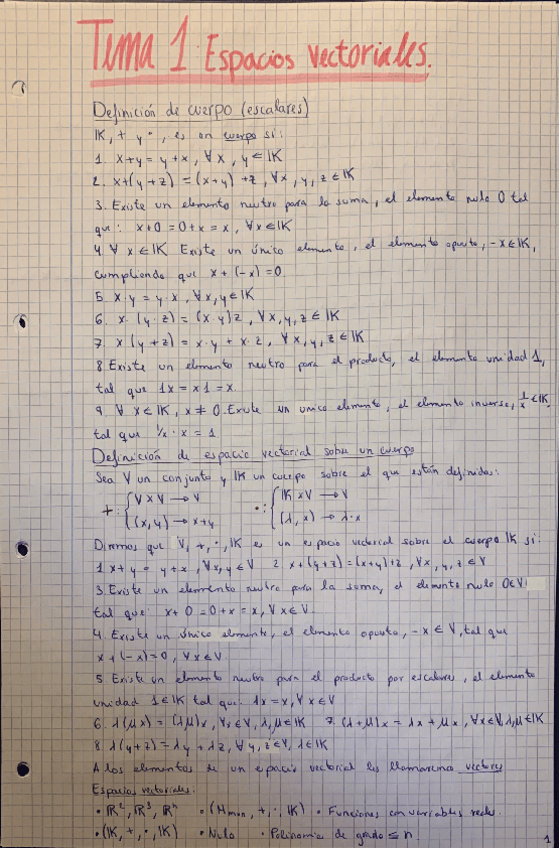 Tema 1: Espacios vectoriales.
Definición de cuerpo (escalares)
IK, + y ·, es un cuerpo si:
1. x+y = y+x, ∀x, y ∈ IK
2. x+(y+z) = (x+y)+z, ∀x, y, z ∈ IK
3. Existe un elemento neutro para la suma, el elemento nulo 0 tal
que: x+0 = 0+x = x, ∀x ∈ IK
4. ∀ x ∈ IK Existe un único elemento, el elemento opuesto, -x ∈ IK,
cumpliendo que x + (-x) = 0
5. x·y = y·x, ∀x, y ∈ IK
6. x·(y·z) = (x·y)z, ∀x, y, z ∈ IK
7. x(y+z) = x·y + x·z, ∀x, y, z ∈ IK
8. Existe un elemento neutro para el producto, el elemento unidad 1,
tal que 1x = x1 = x.
9. ∀ x ∈ IK, x ≠ 0. Existe un único elemento, el elemento inverso, 1/x ∈ IK,
tal que 1/x · x = 1
Definición de espacio vectorial sobre un cuerpo
Sea V un conjunto y IK un cuerpo sobre el que están definidas:
+: { V x V → V ·: { IK x V → V
(x,y) → x+y (λ,x) → λ·x
Diremos que V, +, ·, IK es un espacio vectorial sobre el cuerpo IK si:
1. x+y = y+x, ∀x, y ∈ V 2. x+(y+z) = (x+y)+z, ∀x, y, z ∈ V
3. Existe un elemento neutro para la suma, el elemento nulo 0 ∈ V
tal que: x+0 = 0+x = x, ∀x ∈ V.
4. Existe un único elemento, el elemento opuesto, -x ∈ V, tal que
x+(-x) = 0, ∀x ∈ V
5. Existe un elemento neutro para el producto por escalares, el elemento
unidad 1 ∈ IK tal que: 1x = x, ∀x ∈ V
6. λ(μx) = (λμ)x, ∀x ∈ V, λ, μ ∈ IK 7. (λ+μ)x = λx + μx, ∀x ∈ V, λ, μ ∈ IK
8. λ(y+z) = λy + λz, ∀y, z ∈ V, λ ∈ IK
A los elementos de un espacio vectorial les llamaremos vectores
Espacios vectoriales:
· IR², IR³, IRⁿ · (Mmxn, +, ·, IK) · Funciones con variables reales.
· (IK, +, ·, IK) · Nulo · Polinomio de grado ≤ n.
1